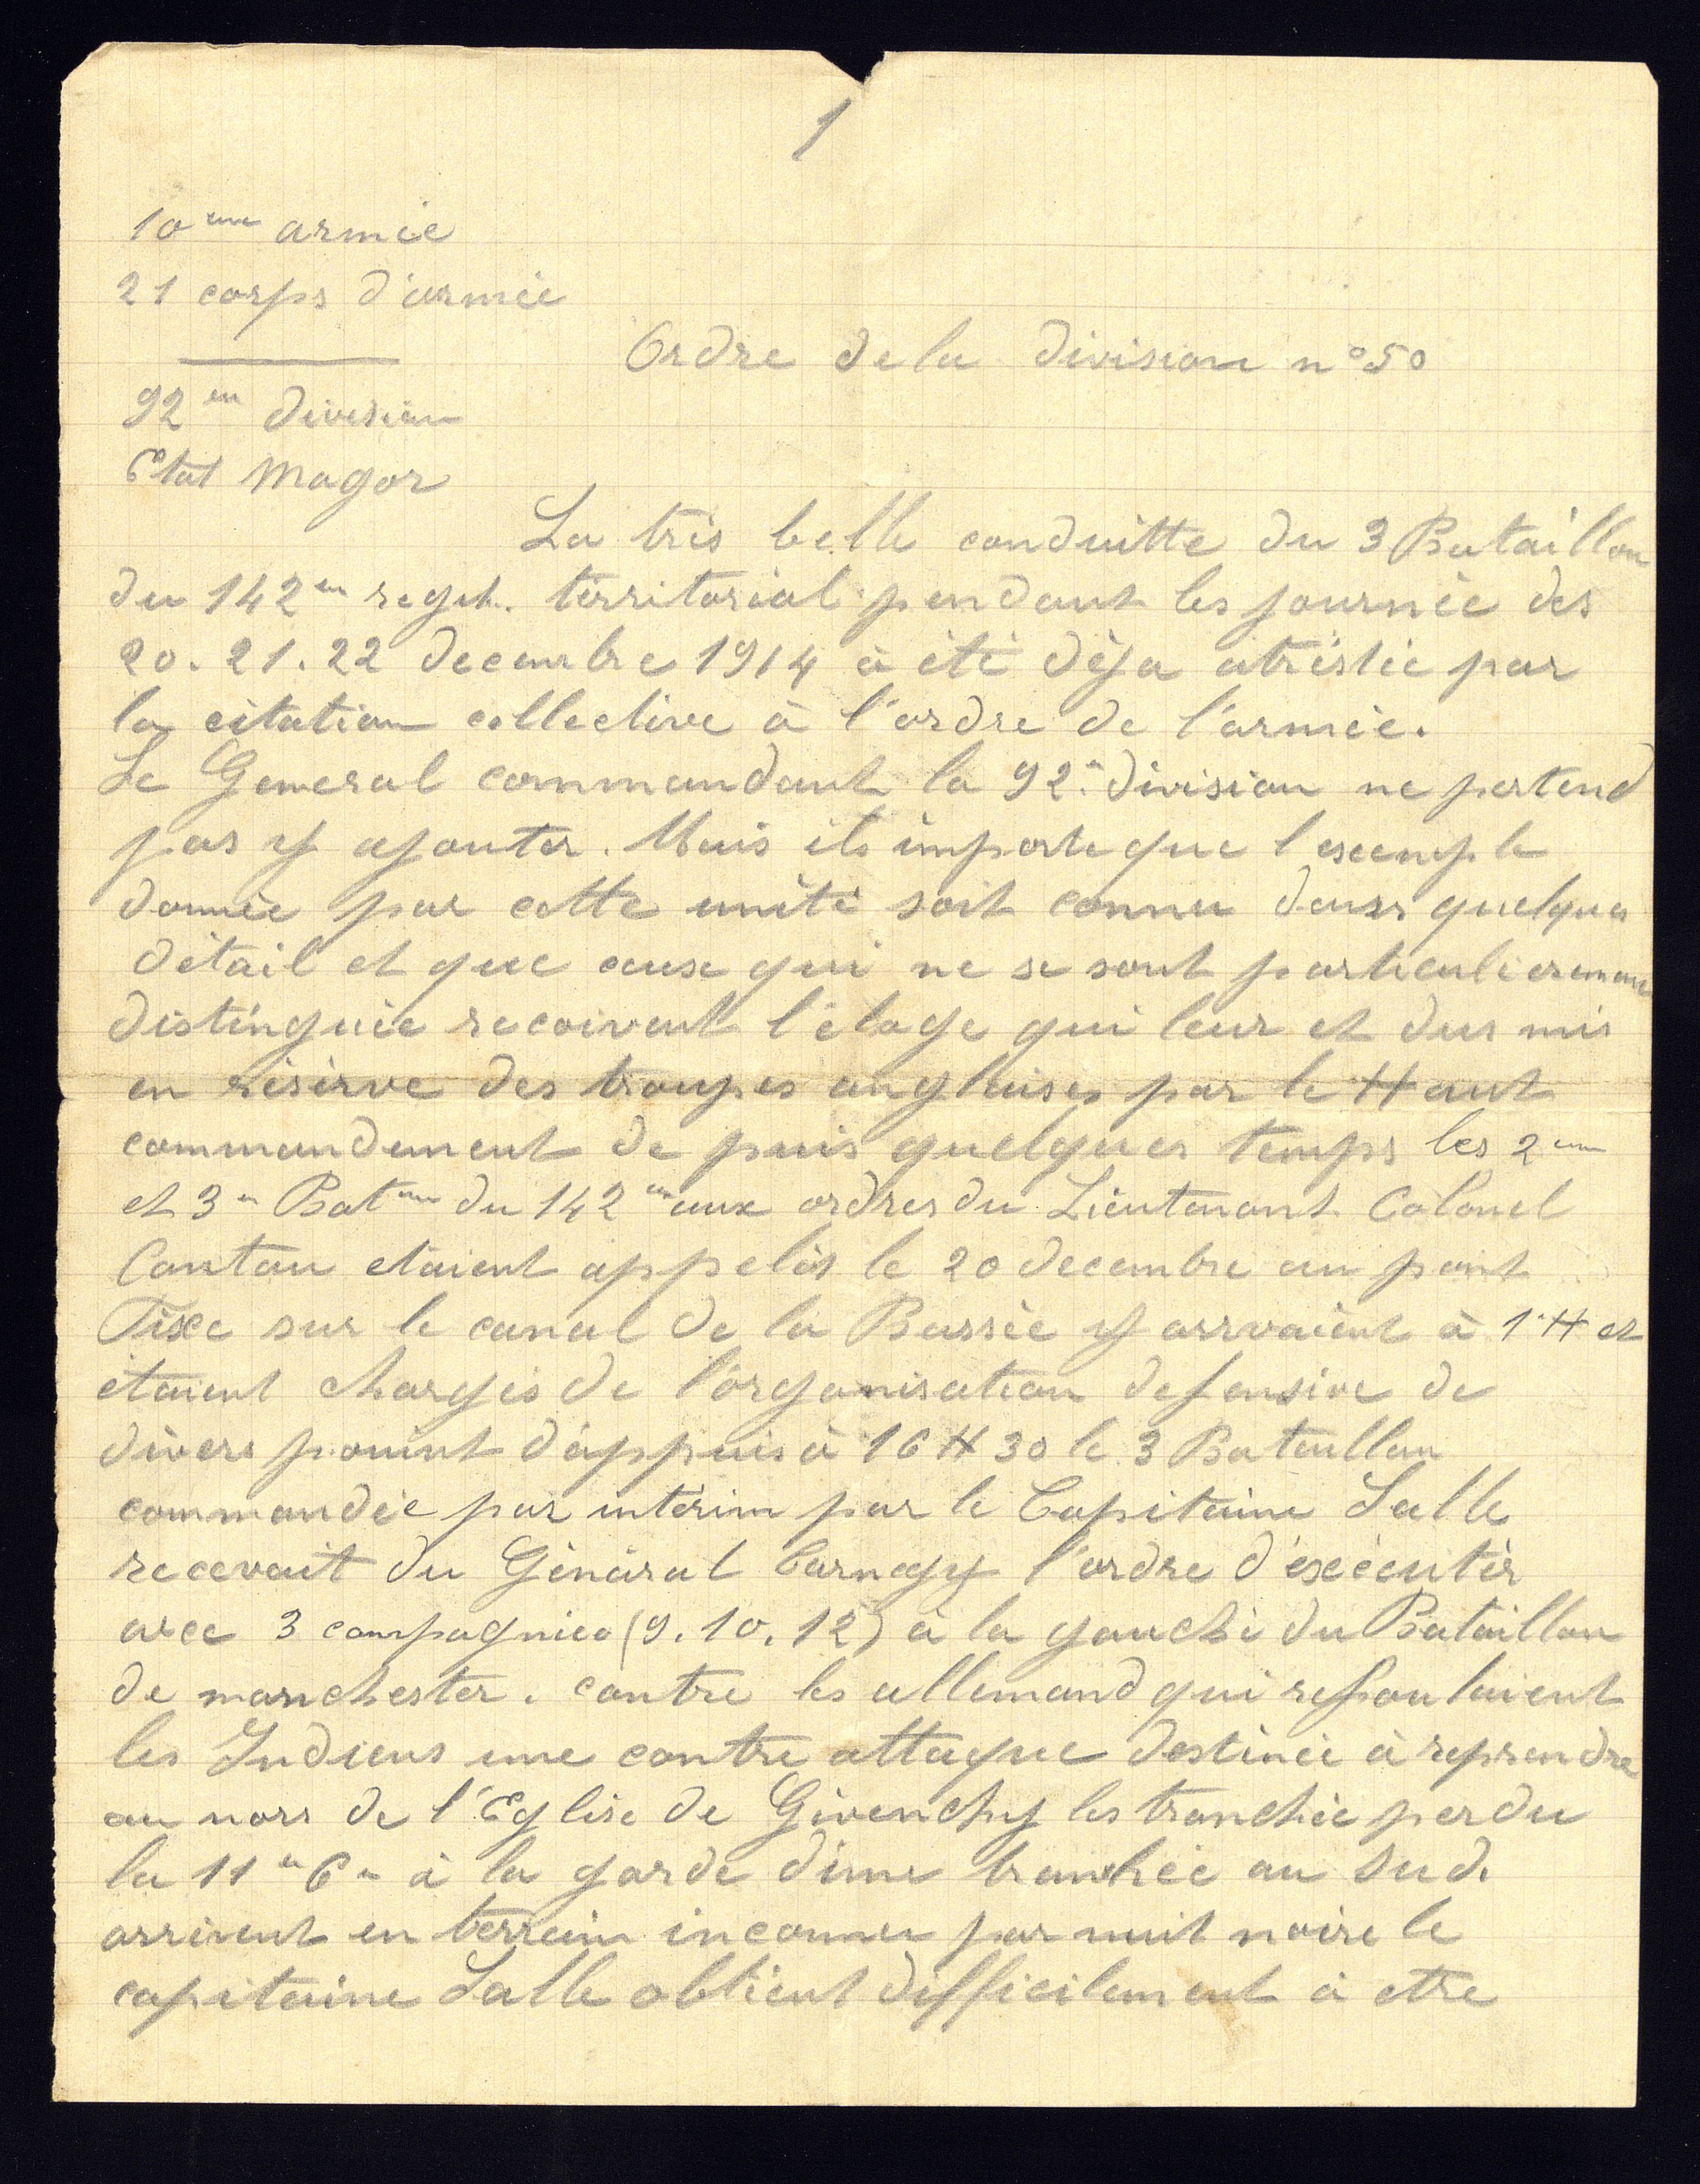 1
10eme armée
21 corps d'armée
Ordre de la division n°50
92em division
Etat Magor
La très belle conduitte du 3 Bataillon
du 142em regt. térritorial pendant les journèe des
20. 21. 22 decembre 1914 à été dèja par
la citation collective à l'ordre de l'armèe.
Le General commandant la 92e division ne pertend
pas y ajouter. Mais ils importe que l'exemple
donnèe par cette unité soit connu dans quelques
détail et que ceuse qui ne se sont particulierement
distinguèe recoivent l'éloge qui leur et dus mis
en résèrve des troupes anglaises par le Haut
commandement de puis quelques temps les 2em
et 3e Baton du 142em aux ordres du Lieutenant Colonel
Canton etaient appelés le 20 decembre au pont
Fixe sur le canal de la Bassèe y arrvaient à 1H et
étaient chargés de l'organisation defensive de
divers pouint d'appuis à 16H30 le 3 Bataillon
commandée par intérim par le Capitaine Salle
recevait du Général Carnegy l'ordre d'exécutér
avec 3 compagnies (9. 10. 12) à la gauche du Bataillon
de manchester. contre les allemand qui refoulaient
les Indiens une contre attaque destinée à reprendre
au nors de l'Eglise de Givenchy les tranchèe perdu
la 11e Ce à la garde d'une tranhèe au Sud.
arrivent en terrain inconnu par nuit noire le
capitaine Salle obtient difficilement à etre